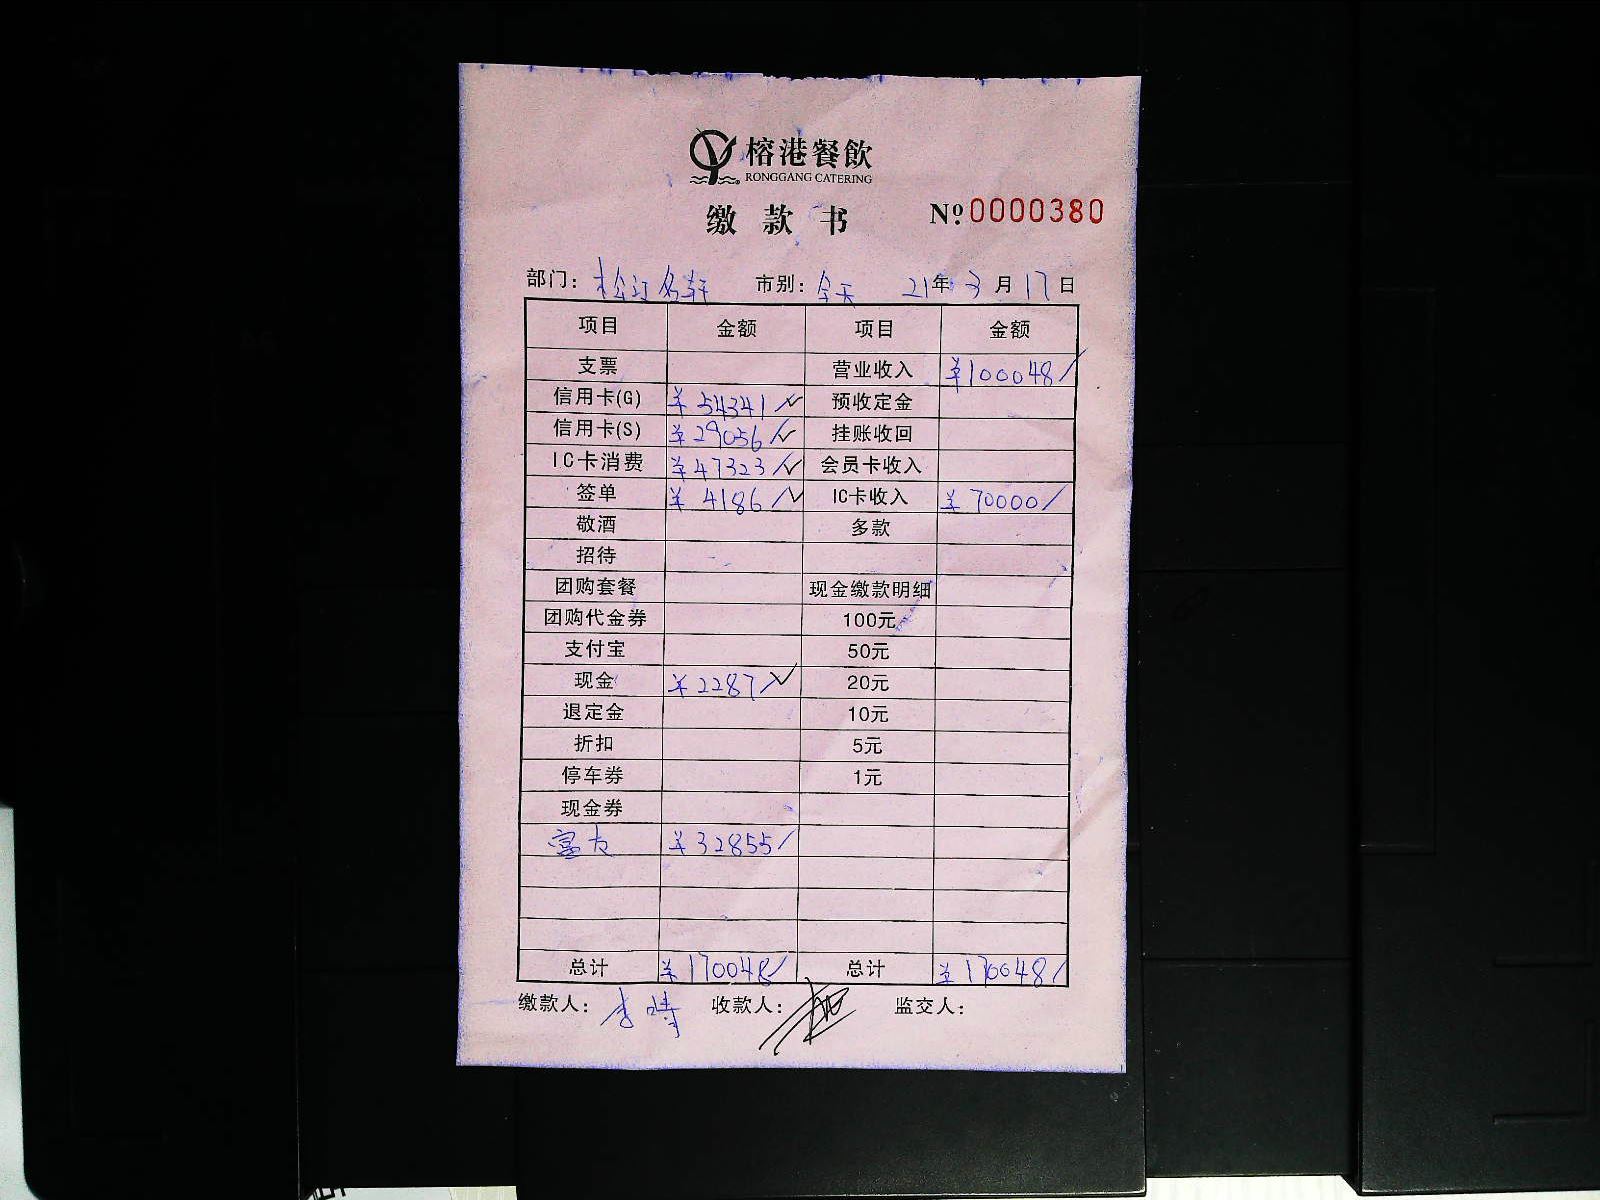 榕港餐飲
RONGGANG CATERING
缴款书 №0000380
部门：松江名轩 市别：全天 21年3月17日
项目 金额 项目 金额
支票 营业收入 ¥100048/
信用卡(G) ¥54341/ 预收定金
信用卡(S) ¥29056/ 挂账收回
IC卡消费 ¥47323/ 会员卡收入
签单 ¥4186/ IC卡收入 ¥70000/
敬酒 多款
招待
团购套餐 现金缴款明细
团购代金券 100元
支付宝 50元
现金 ¥2287/ 20元
退定金 10元
折扣 5元
停车券 1元
现金券
富友 ¥32855/
总计 ¥170048/ 总计 ¥170048/
缴款人：李 收款人： 监交人：